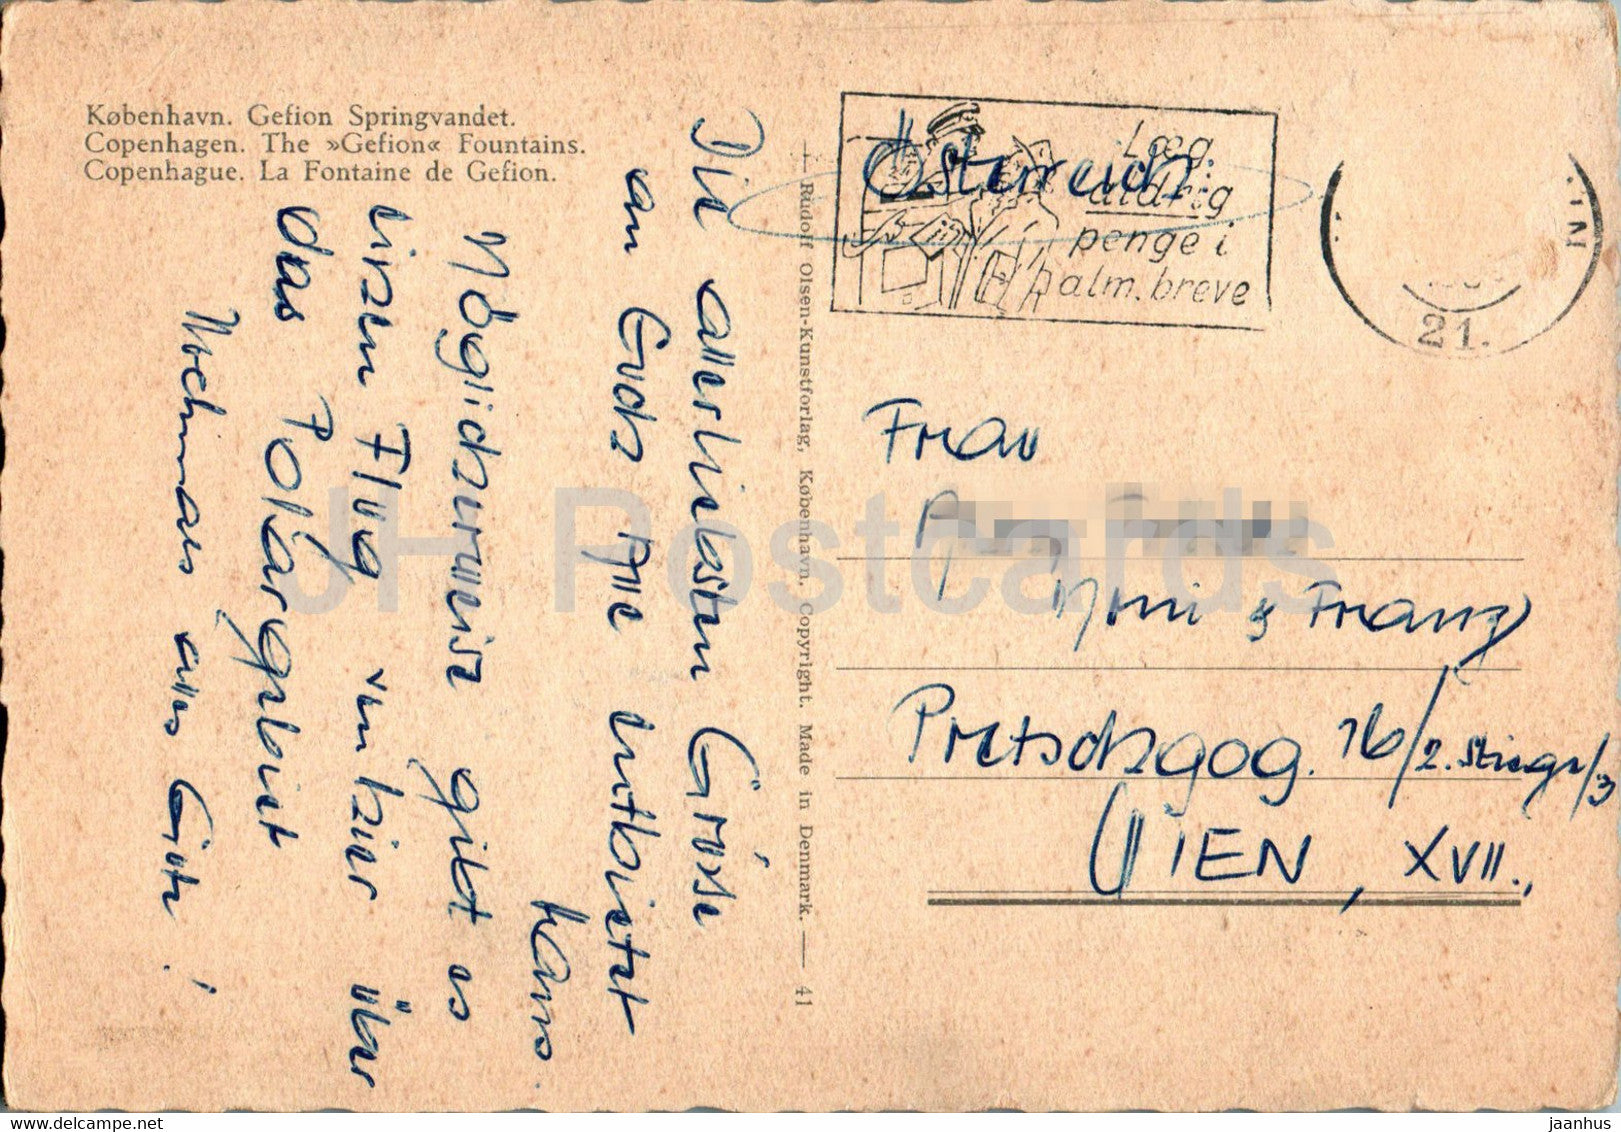 København. Gefion Springvandet.
Copenhagen. The »Gefion« Fountains.
Copenhague. La Fontaine de Gefion.
Die allerliebsten Grüsse
an Euch alle entbietet
Hans.
Möglicherweise gibt es
einen Flug von hier über
das Polargebiet
Nochmals alles Gute!
— Rudolf Olsen-Kunstforlag, København. Copyright. Made in Denmark. — 41
Læg
aldrig
penge i
alm. breve
Österreich
21.
Frau
Moni & Franz
Pretschgog. 16/2. Stiege/3
WIEN, XVII.,
JH Postcards
www.delcampe.net
jaanhus